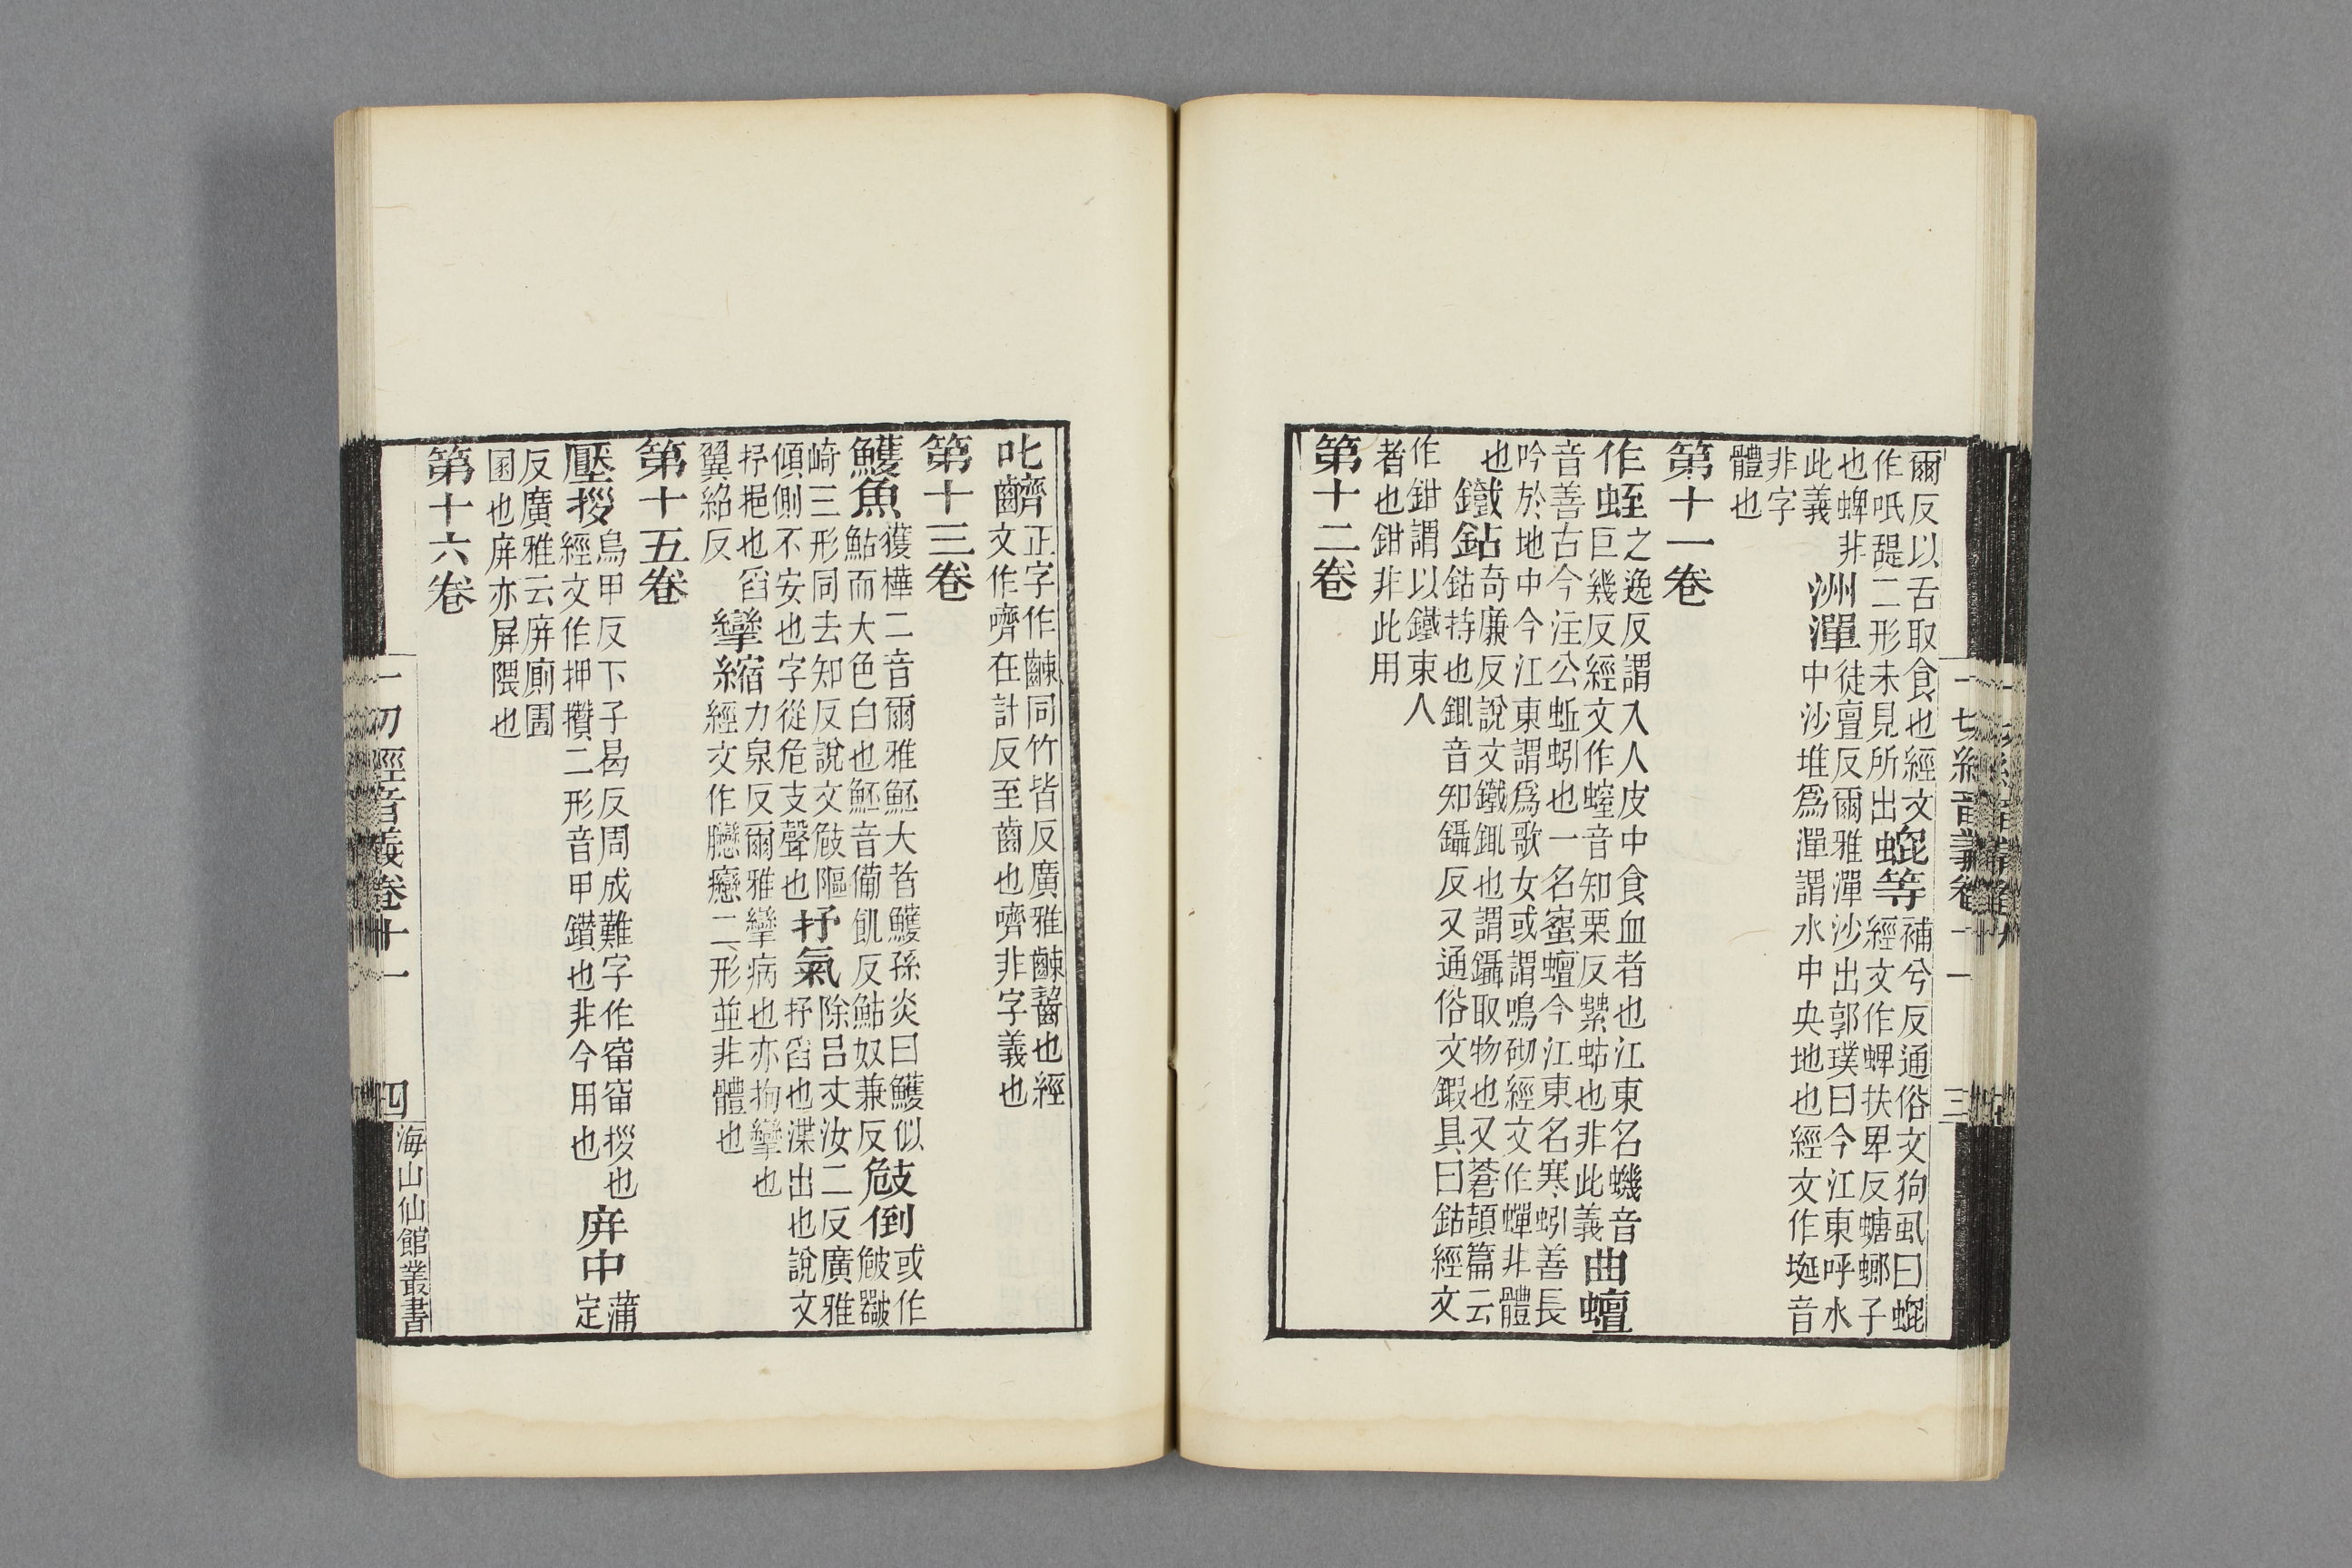 爾反以舌取食也經文
作呧䑛二形未見所出
蜫等
補兮反通俗文狗虱曰蜫
經文作蜱扶卑反螗螂子
也蜱非
此義
洲潬
徒亶反爾雅潬沙出郭璞曰今江東呼水
中沙堆爲潬謂水中央地也經文作埏音
非字
體也
第十一卷
作蛭
之逸反謂入人皮中食血者也江東名蟣音
巨幾反經文作螲音知栗反蛄也非此義
曲蟺
音善古今注公蚯蚓也一名蜜蟺今江東名寒蚓善長
吟於地中今江東謂爲歌女或謂鳴砌經文作蟬非體
也
鐵鉆
奇廉反說文鐵銸也謂鑷取物也又蒼頡篇云
鉆持也銸音知鑷反又通俗文鍜具曰鉆經文
作鉗謂以鐵束人
者也鉗非此用
第十二卷
一切經音義卷十一
三
叱
正字作同竹皆反廣雅齧也經
文作嚌在計反至齒也嚌非字義也
第十三卷
鱯魚
獲樺二音爾雅魾大者鱯孫炎曰鱯似
鮎而大色白也魾音備飢反鮎奴兼反
攲倒
或作
崎三形同去知反說文攲䧢
傾側不安也字從危支聲也
抒氣
除呂丈汝二反廣雅
抒舀也渫出也說文
抒挹也舀
翼紹反
攣縮
力泉反爾雅攣病也亦拘攣也
經文作癴二形並非體也
第十五卷
壓拶
烏甲反下子曷反周成難字作拶也
經文作押攢二形音甲鑽也非今用也
庰中
蒲定
反廣雅云庰廁圊
圂也庰亦屏隈也
第十六卷
一切經音義卷十一
四
海山仙館叢書